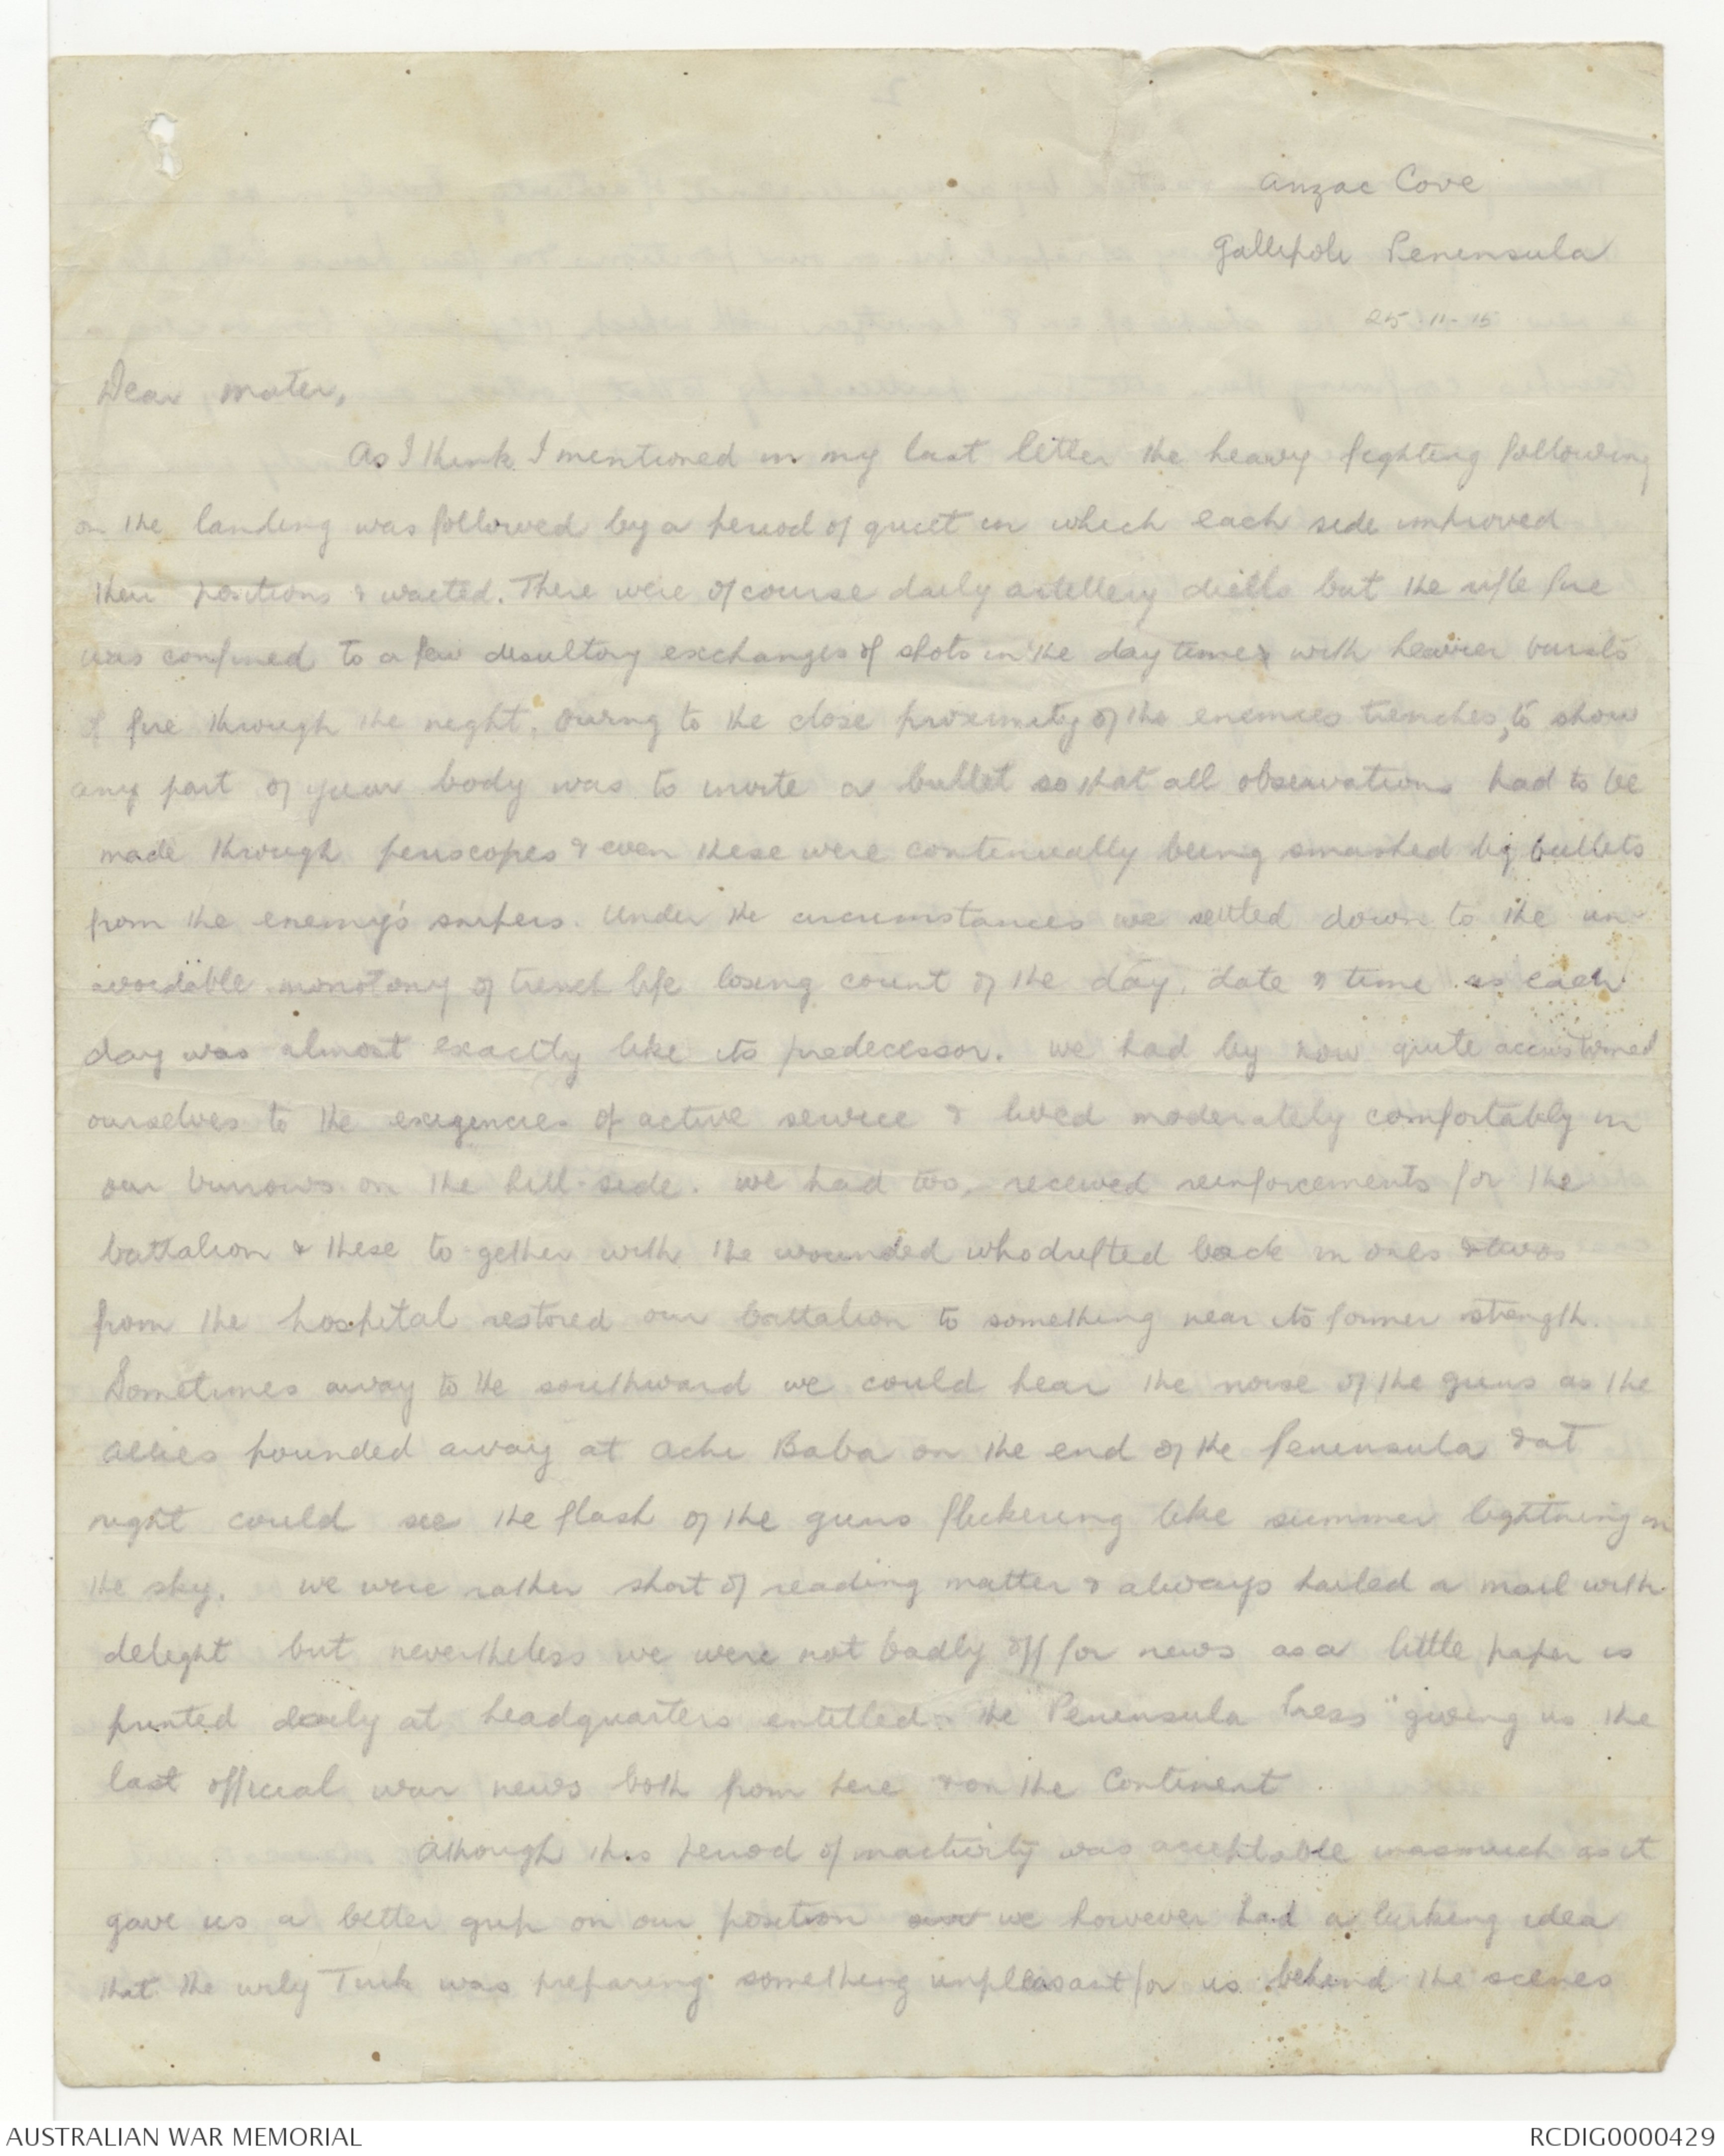 Anzac Cove
Gallipoli Peninsula
25-11-15
Dear Mater,
As I think I mentioned in my last letter the heavy fighting following
on the landing was followed by a period of quiet in which each side improved
their positions & waited. There were of course daily artillery duels but the rifle fire
was confined to a few desultory exchanges of shots in the daytime & with heavier bursts
of fire through the night. Owing to the close proximity of the enemies trenches, to show
any part of your body was to invite a bullet so that all observations had to be
made through periscopes & even these were continually being smashed by bullets
from the enemy's snipers. Under the circumstances we settled down to the un-
avoidable monotony of trench life losing count of the day, date & time as each
day was almost exactly like its predecessor. We had by now quite accustomed
ourselves to the exigencies of active service & lived moderately comfortably in
our burrows on the hill-side. We had too, received reinforcements for the
battalion & these to-gether with the wounded who drifted back in ones & twos
from the hospital restored our battalion to something near its former strength.
Sometimes away to the southward we could hear the noise of the guns as the
Allies pounded away at Achi Baba on the end of the Peninsula & at
night could see the flash of the guns flickering like summer lightning in
the sky. We were rather short of reading matter & always hailed a mail with
delight but nevertheless we were not badly off for news as a little paper is
printed daily at headquarters entitled the "Peninsula Press" giving us the
last official war news both from here & on the Continent.
Although this period of inactivity was acceptable inasmuch as it
gave us a better grip on our position we however had a lurking idea
that the wily Turk was preparing something unpleasant for us behind the scenes
AUSTRALIAN WAR MEMORIAL
RCDIG0000429